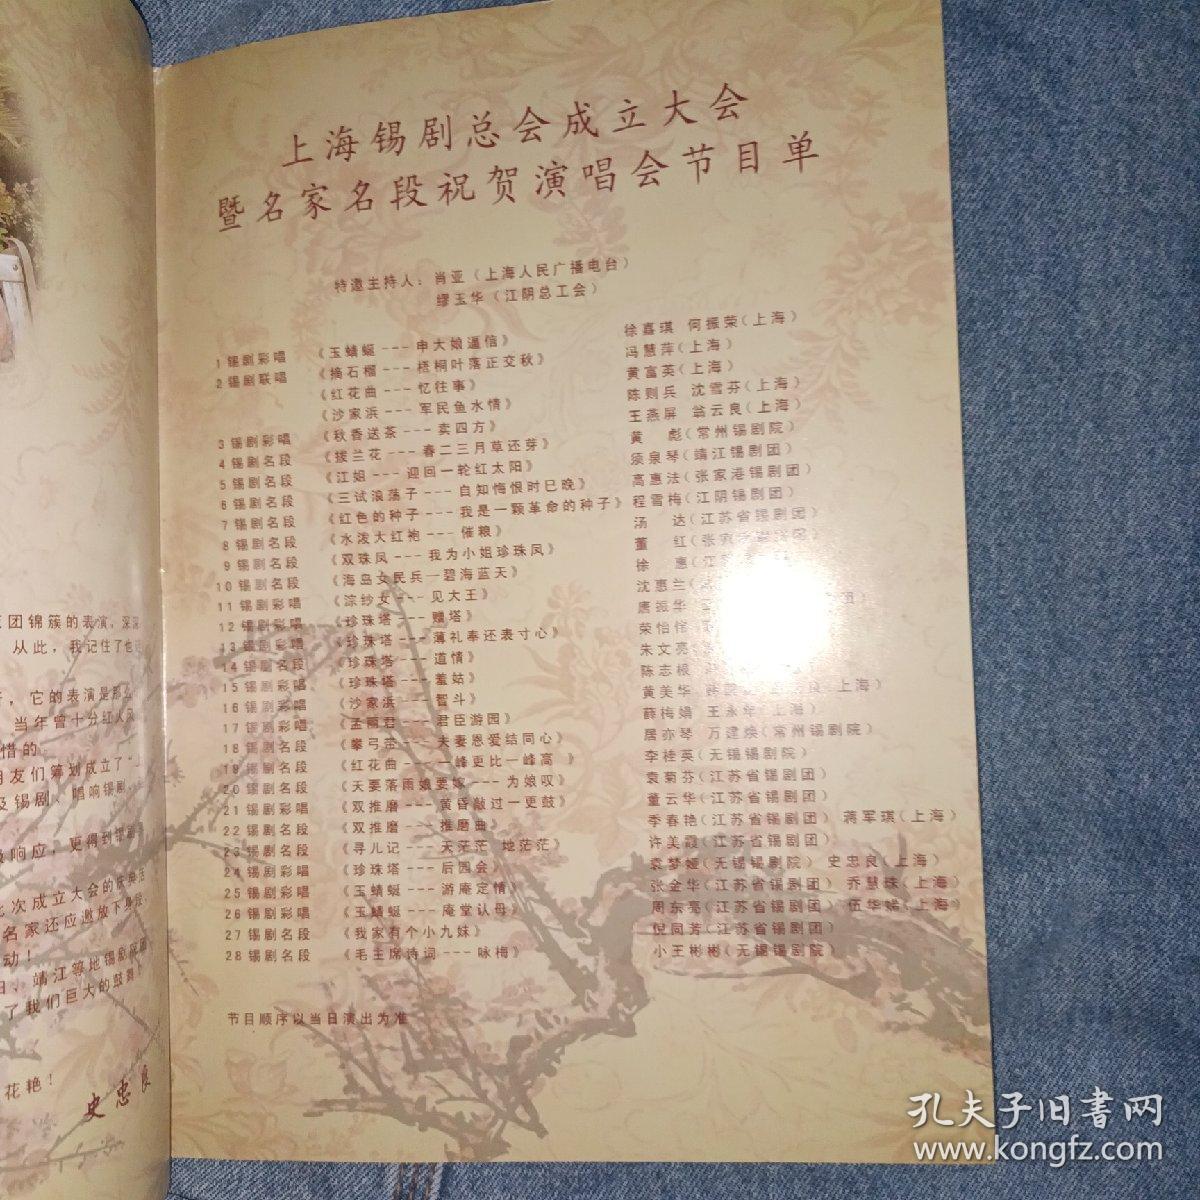 团锦簇的表演，深深
从此，我记住了他
它的表演是那么
当年曾十分红人
惜的。
朋友们筹划成立了“上
及锡剧、唱响锡剧
响应，更得到锡剧
此次成立大会的庆典活
名家还应邀放下身段
动！
靖江等地锡剧院团
了我们巨大的鼓舞！
花艳！
史忠良
上海锡剧总会成立大会
暨名家名段祝贺演唱会节目单
特邀主持人：肖亚（上海人民广播电台）
缪玉华（江阴总工会）
1 锡剧彩唱 《玉蜻蜓---申大娘逼信》 徐嘉琪 何振荣（上海）
2 锡剧联唱 《摘石榴---梧桐叶落正交秋》 冯慧萍（上海）
《红花曲---忆往事》 黄富英（上海）
《沙家浜---军民鱼水情》 陈则兵 沈雪芬（上海）
3 锡剧彩唱 《秋香送茶---卖四方》 王燕屏 翁云良（上海）
4 锡剧名段 《拔兰花---春二三月草还芽》 黄 彪（常州锡剧院）
5 锡剧名段 《江姐---迎回一轮红太阳》 须泉琴（靖江锡剧团）
6 锡剧名段 《三试浪荡子---自知悔恨时已晚》 高惠法（张家港锡剧团）
7 锡剧名段 《红色的种子---我是一颗革命的种子》 程雪梅（江阴锡剧团）
8 锡剧名段 《水泼大红袍---催粮》 汤 达（江苏省锡剧团）
9 锡剧名段 《双珠凤---我为小姐珍珠凤》 董 红（张家港锡剧团）
10 锡剧名段 《海岛女民兵—碧海蓝天》 徐 惠（江
11 锡剧彩唱 《浣纱女---见大王》 沈惠兰
12 锡剧彩唱 《珍珠塔---赠塔》 唐振华
13 锡剧彩唱 《珍珠塔---薄礼奉还表寸心》 荣怡
14 锡剧名段 《珍珠塔---道情》 朱文亮
15 锡剧彩唱 《珍珠塔---羞姑》 陈志根
16 锡剧彩唱 《沙家浜---智斗》 黄美华 良（上海）
17 锡剧彩唱 《孟丽君---君臣游园》 薛梅娟 王永年（上海）
18 锡剧名段 《攀弓带---夫妻恩爱结同心》 居亦琴 万建焕（常州锡剧院）
19 锡剧名段 《红花曲---一峰更比一峰高 》 李桂英（无锡锡剧院）
20 锡剧名段 《天要落雨娘要嫁---为娘叹》 袁菊芬（江苏省锡剧团）
21 锡剧彩唱 《双推磨---黄昏敲过一更鼓》 董云华（江苏省锡剧团）
22 锡剧名段 《双推磨---推磨曲》 季春艳（江苏省锡剧团） 蒋军琪（上海）
23 锡剧名段 《寻儿记---天茫茫 地茫茫》 许美霞（江苏省锡剧团）
24 锡剧彩唱 《珍珠塔---后园会》 袁梦娅（无锡锡剧院） 史忠良（上海）
25 锡剧彩唱 《玉蜻蜓---游庵定情》 张金华（江苏省锡剧团） 乔慧珠（上海）
26 锡剧彩唱 《玉蜻蜓---庵堂认母》 周东亮（江苏省锡剧团） 伍华娣（上海）
27 锡剧名段 《我家有个小九妹》 倪同芳（江苏省锡剧团）
28 锡剧名段 《毛主席诗词---咏梅》 小王彬彬（无锡锡剧院）
节目顺序以当日演出为准
孔夫子旧书网
www.kongfz.com